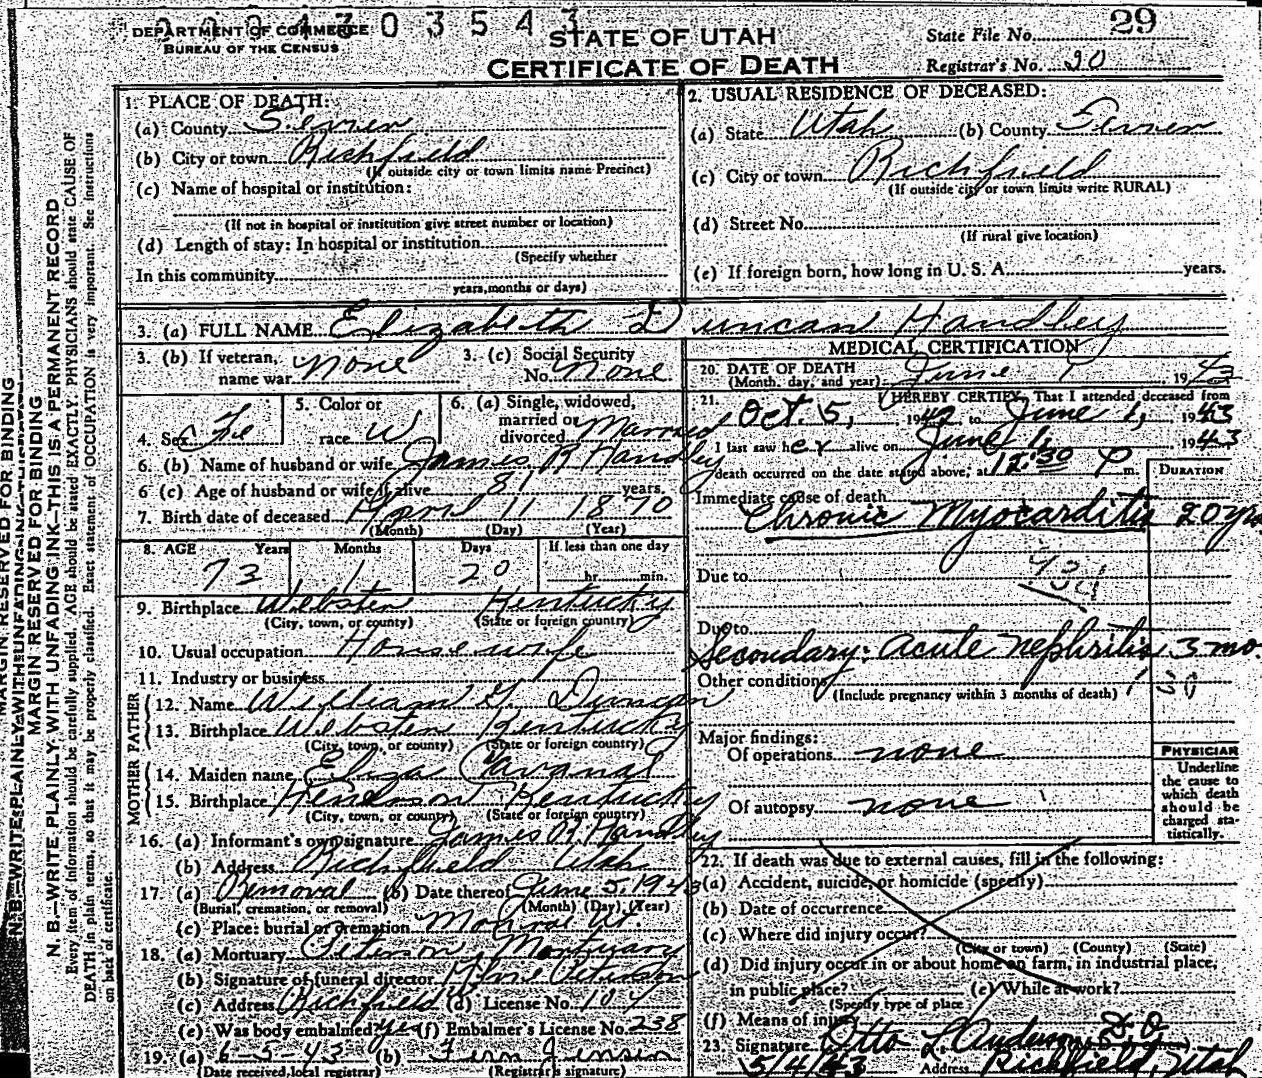 0 3 5 4 3
DEPARTMENT OF COMMERCE
BUREAU OF THE CENSUS
STATE OF UTAH
CERTIFICATE OF DEATH
State File No. 29
Registrar's No. 20
1. PLACE OF DEATH:
(a) County Sevier
(b) City or town Richfield
(If outside city or town limits name Precinct)
(c) Name of hospital or institution:
(If not in hospital or institution give street number or location)
(d) Length of stay: In hospital or institution
(Specify whether
In this community
years, months or days)
2. USUAL RESIDENCE OF DECEASED:
(a) State Utah (b) County Sevier
(c) City or town Richfield
(If outside city or town limits write RURAL)
(d) Street No.
(If rural give location)
(e) If foreign born, how long in U. S. A. years.
3. (a) FULL NAME Elizabeth Duncan Handley
3. (b) If veteran, name war None
3. (c) Social Security No. None
4. Sex Fe
5. Color or race W
6. (a) Single, widowed, married or divorced Married
6. (b) Name of husband or wife James R Handley
6 (c) Age of husband or wife if alive 81 years.
7. Birth date of deceased April 11 1870
(Month) (Day) (Year)
8. AGE Years Months Days If less than one day
73 1 20 hr. min.
9. Birthplace Webster Kentucky
(City, town, or county) (State or foreign country)
10. Usual occupation Housewife
11. Industry or business
FATHER
12. Name William G. Duncan
13. Birthplace Webster Kentucky
(City, town, or county) (State or foreign country)
MOTHER
14. Maiden name Eliza
15. Birthplace Kentucky
(City, town, or county) (State or foreign country)
16. (a) Informant's own signature James R. Handley
(b) Address Richfield Utah
17. (a) Removal (b) Date thereof June 5, 1943
(Burial, cremation, or removal) (Month) (Day) (Year)
(c) Place: burial or cremation Monroe Ut.
18. (a) Mortuary Peterson Mortuary
(b) Signature of funeral director Peterson
(c) Address Richfield (d) License No. 107
(e) Was body embalmed? yes (f) Embalmer's License No. 238
19. (a) 6-5-43 (b) Fern Jensen
(Date received, local registrar) (Registrar's signature)
MEDICAL CERTIFICATION
20. DATE OF DEATH
(Month, day, and year) June 1 1943
21. I HEREBY CERTIFY, That I attended deceased from
Oct. 5, 1942 to June 1, 1943
I last saw her alive on June 1, 1943
death occurred on the date stated above, at 12:30 P m.
DURATION
Immediate cause of death
Chronic Myocarditis 20 yrs
Due to
Due to
Secondary: Acute nephritis 3 mo.
Other conditions
(Include pregnancy within 3 months of death)
Major findings:
Of operations none
Of autopsy none
PHYSICIAN
Underline
the cause to
which death
should be
charged sta-
tistically.
22. If death was due to external causes, fill in the following:
(a) Accident, suicide, or homicide (specify)
(b) Date of occurrence
(c) Where did injury occur?
(City or town) (County) (State)
(d) Did injury occur in or about home on farm, in industrial place,
in public place? (e) While at work?
(Specify type of place
(f) Means of injury
23. Signature Otto L. Anderson, D.O.
5/4/43 Address Richfield, Utah
MARGIN RESERVED FOR BINDING
N. B.—WRITE PLAINLY WITH UNFADING INK—THIS IS A PERMANENT RECORD
Every item of information should be carefully supplied. AGE should be stated EXACTLY. PHYSICIANS should state CAUSE OF
DEATH in plain terms, so that it may be properly classified. Exact statement of OCCUPATION is very important. See instructions
on back of certificate.